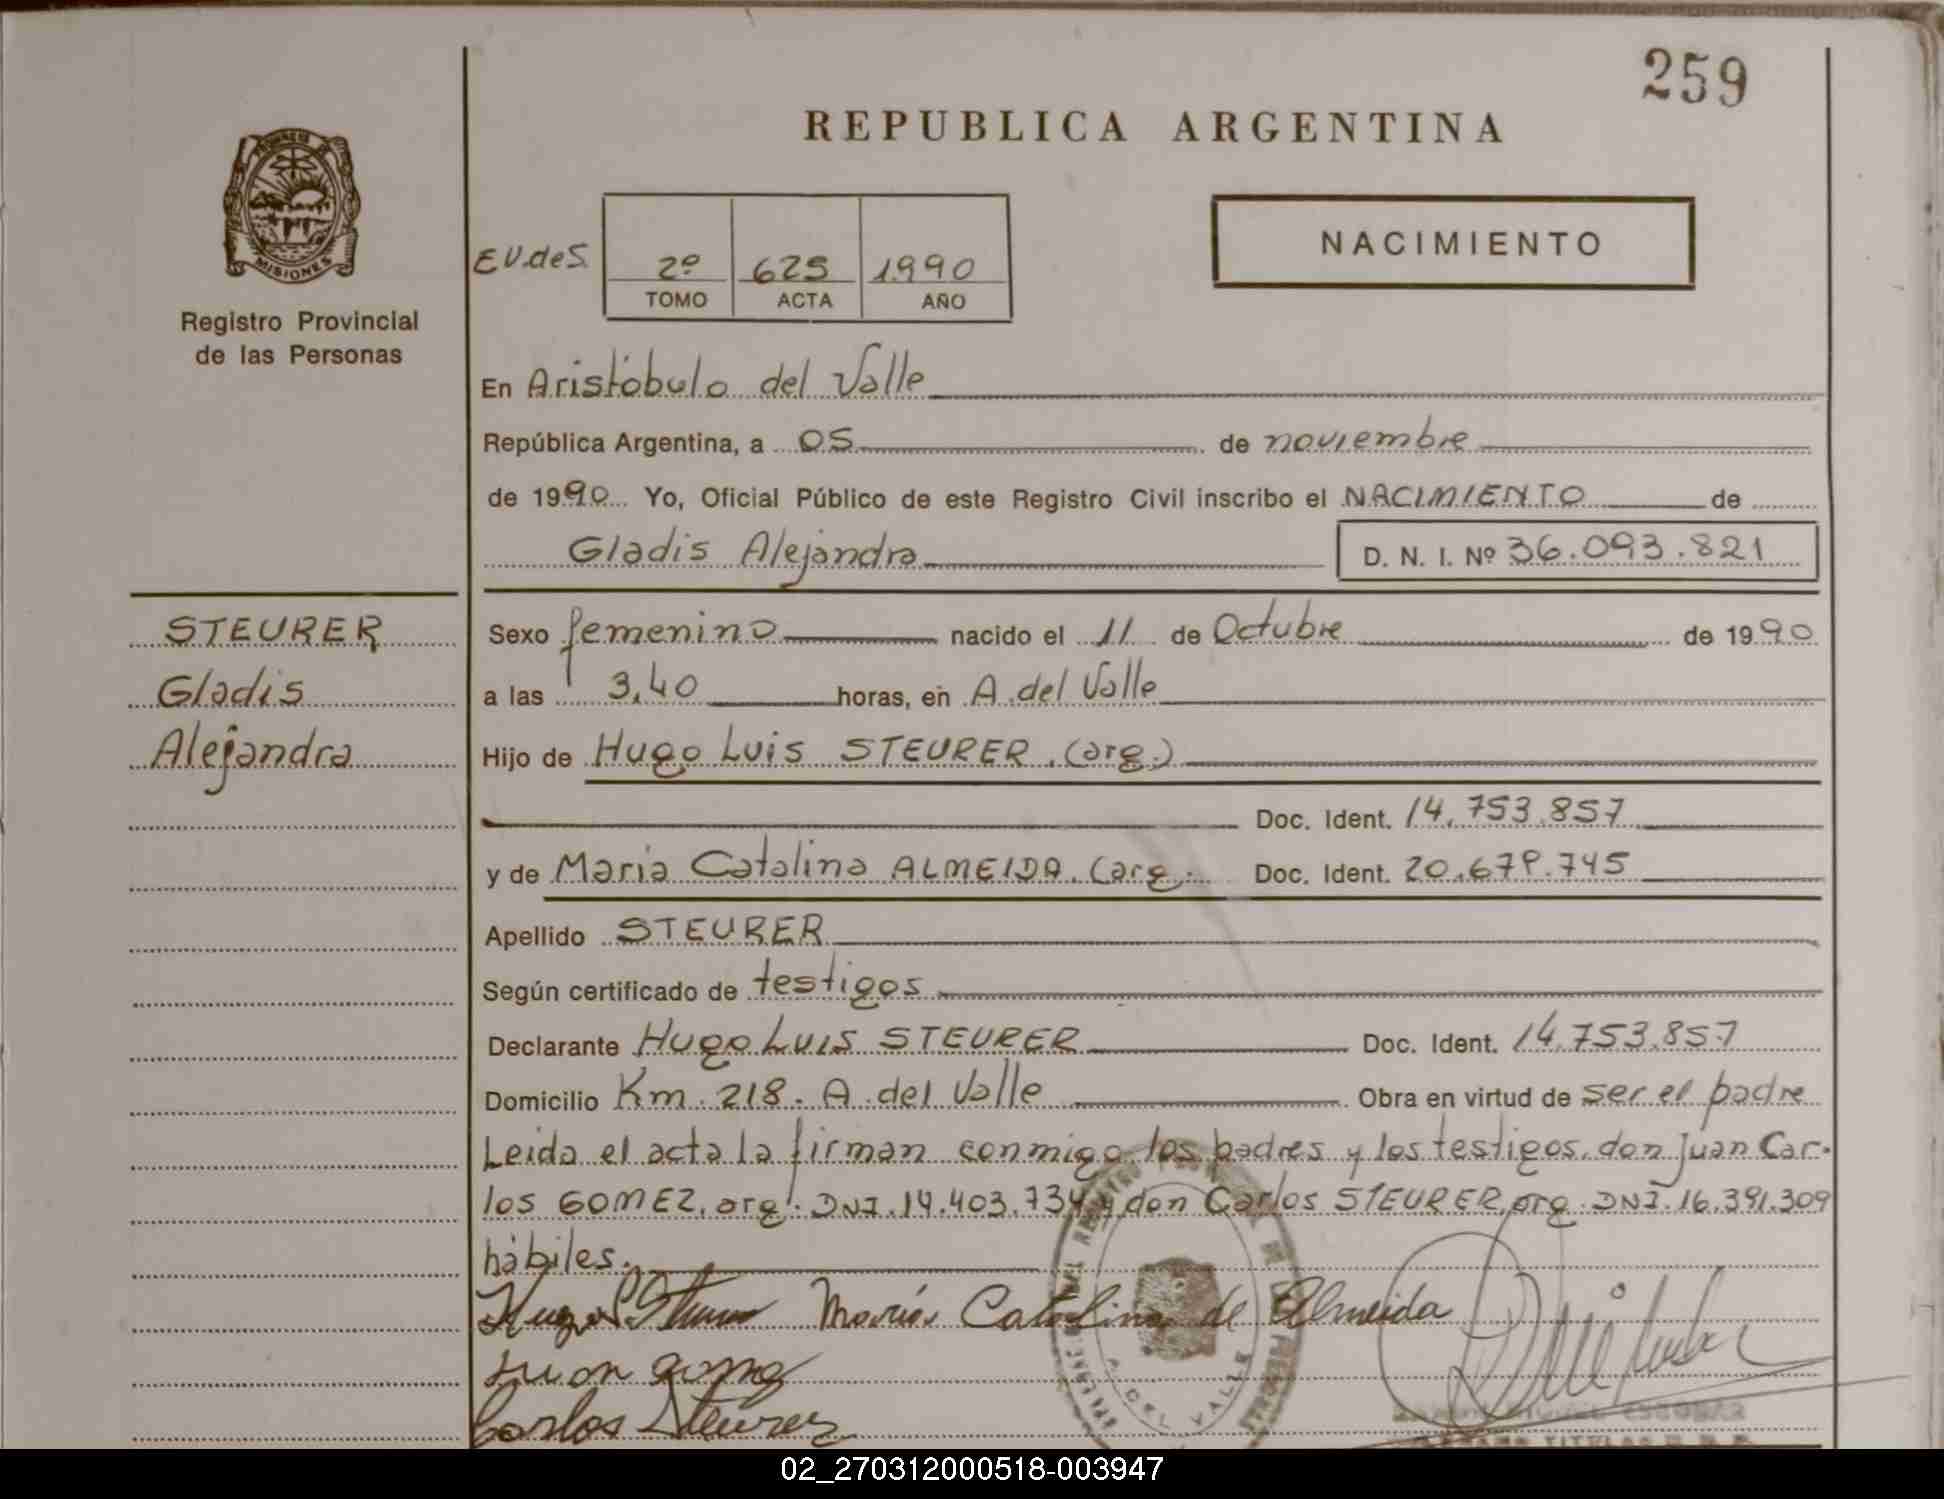 259
REPUBLICA ARGENTINA
MISIONES
Registro Provincial
de las Personas
NACIMIENTO
E.V.deS. 2º 625 1990
TOMO ACTA AÑO
En Aristóbulo del Valle
República Argentina, a 05 de noviembre
de 1990 Yo, Oficial Público de este Registro Civil inscribo el NACIMIENTO de
Gladis Alejandra D. N. I. Nº 36.093.821
STEURER
Gladis
Alejandra
Sexo femenino nacido el 11 de Octubre de 1990
a las 3,40 horas, en A. del Valle
Hijo de Hugo Luis STEURER. (arg.)
Doc. Ident. 14.753.857
y de Maria Catalina ALMEIDA. (arg. Doc. Ident. 20.679.745
Apellido STEURER
Según certificado de testigos
Declarante Hugo Luis STEURER Doc. Ident. 14.753.857
Domicilio Km. 218. A. del Valle Obra en virtud de ser el padre
Leida el acta la firman conmigo los padres y los testigos, don Juan Car-
los GOMEZ, arg. DNI. 14.403.734 y don Carlos STEURER, arg. DNI. 16.391.309
hábiles.
María Catalina de Almeida
Juan gomez
Carlos Steurer
A. DEL VALLE
ESCOBAR
02_270312000518-003947